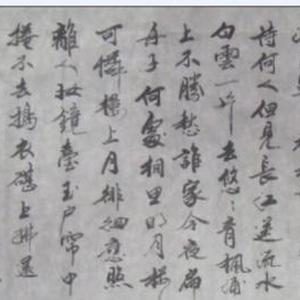 待何人但見長江送流水
白雲一片去悠〻青楓浦
上不勝愁誰家今夜扁
舟子何處相思明月樓
可憐樓上月徘徊應照
離人妝鏡臺玉戶簾中
捲不去擣衣砧上拂還